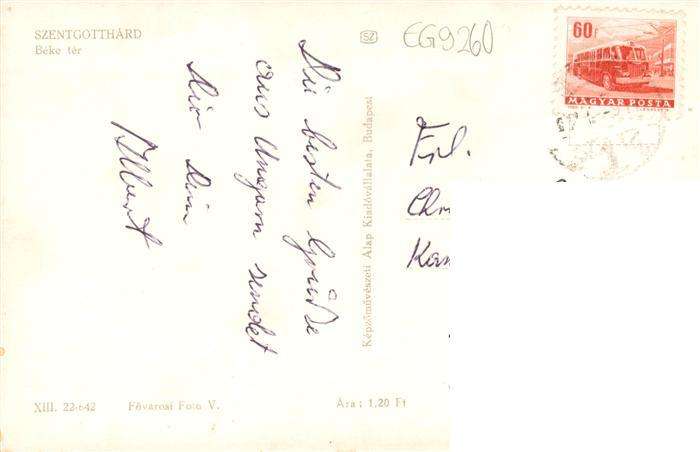 SZENTGOTTHÁRD
Béke tér
SZ
EG9260
60f
MAGYAR POSTA
Die besten Grüße
aus Ungarn sendet
Dir Dein
Albert
Képzőművészeti Alap Kiadóvállalata, Budapest
Frl.
Chr
Kam
XIII. 22-642
Fővárosi Fotó V.
Ára: 1,20 Ft